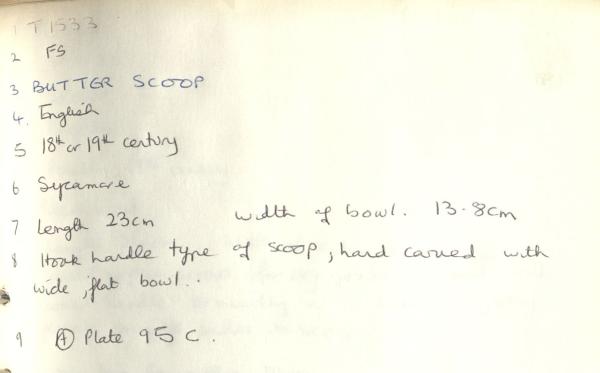 1 T1533
2 FS
3 BUTTER SCOOP
4. English
5 18th or 19th century
6 Sycamore
7 Length 23cm width of bowl. 13.8cm
8 Hook handle type of scoop, hand carved with
wide, flat bowl..
9 (A) Plate 95 C.